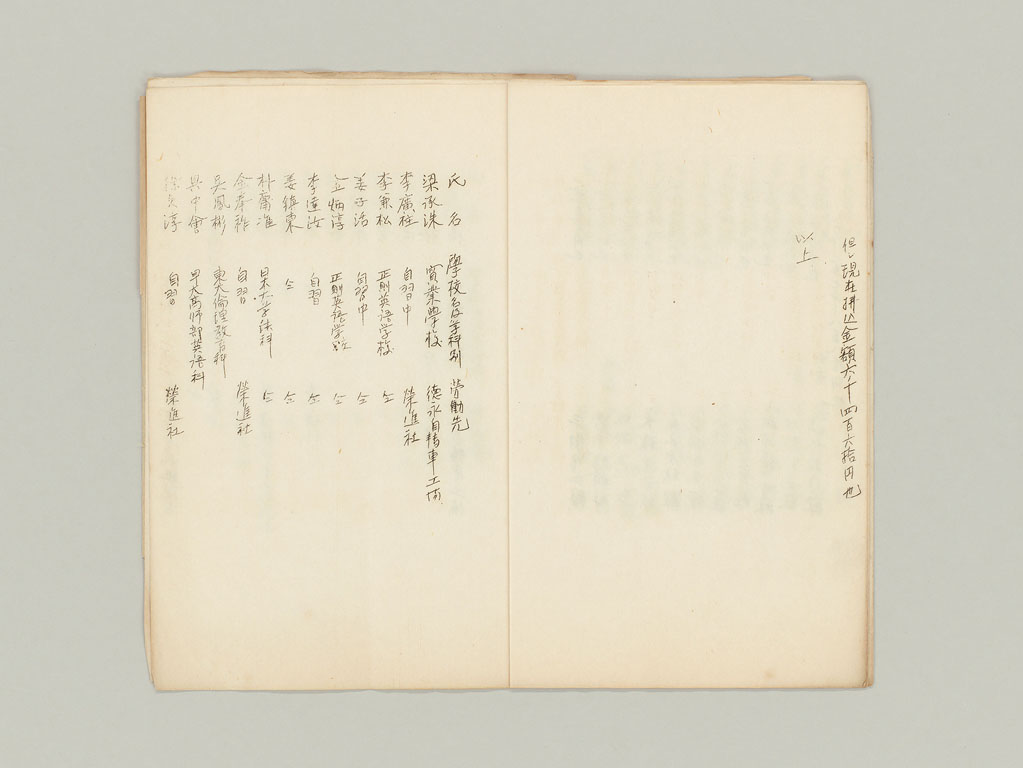 但シ現在拂込金額六千四百六拾円也
以上
氏名 學校名及学科別 労働先
梁承洙 實業學校 德永自轉車工場
李廣柱 自習中 榮進社
李兼松 正則英語学校 仝
姜子浩 自習中 仝
金炳淳 正則英語学校 仝
李達汝 自習 仝
姜鎮東 仝 仝
朴 準 日本大学法科 仝
金奉祚 自習 榮進社
吳鳳彬 東大倫理教育科
具中會 早大高師部英語科
淳 自習 榮進社